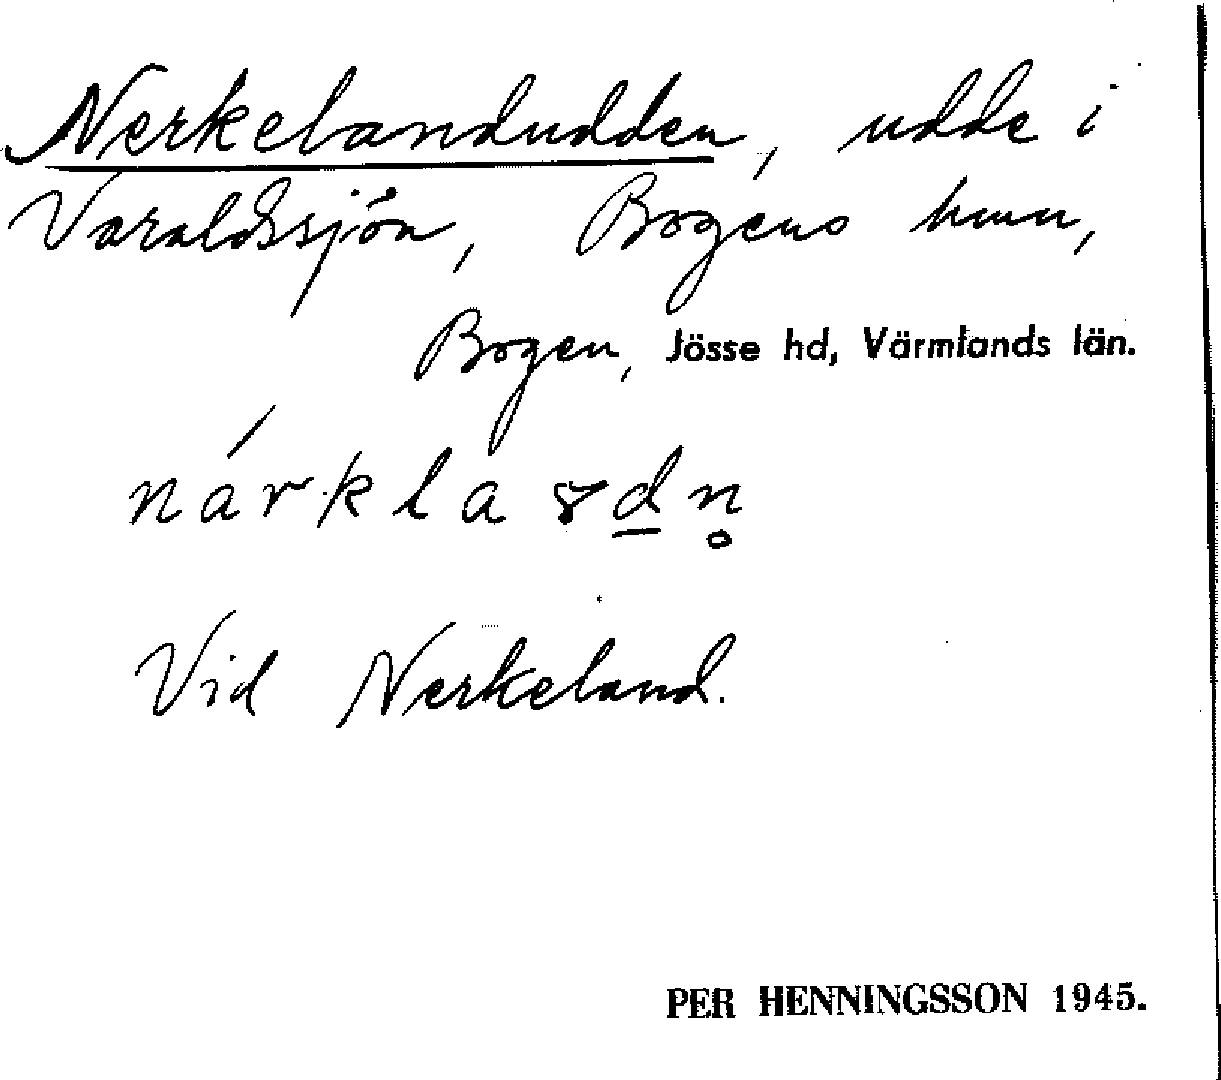 Nerkelandudden, udde i
Varaldssjön, Bogens hmn,
Bogen, Jösse hd, Värmlands län.
nárkla ꝏd̲n̥
Vid Nerkeland.
PER HENNINGSSON 1945.